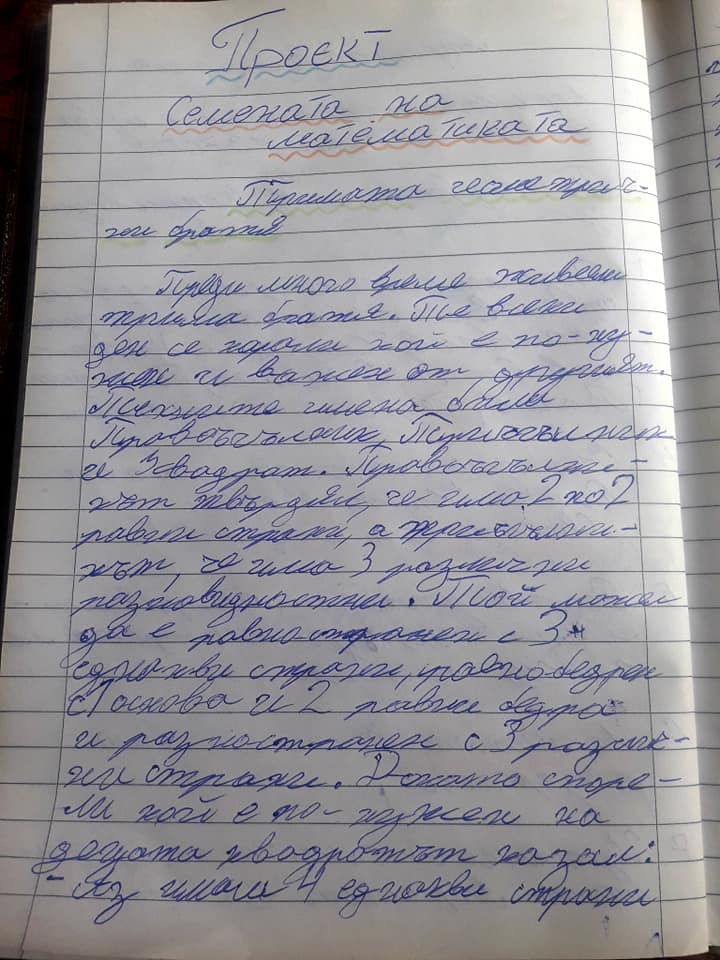 Проєкт
Семената на
математиката
Тримата геометрич-
ни братя
Преди много време живеели
трима братя. Те всеки
ден се карали кой е по-ну-
жен и важен от другият.
Техните имена били
Правоъгълник, Триъгълник
и Квадрат. Правоъгълни-
кът твърдял, че има 2 по 2
равни страни, а триъгълни-
кът, че има 3 различни
разновидности. Той може
да е равностранен с 3
еднакви страни, равнобедрен
с 1 основа и 2 равни бедра
и разностранен с 3 различ-
ни страни. Докато споре-
ли кой е по-нужен на
децата квадратът казал:
- Аз имам 4 еднакви страни